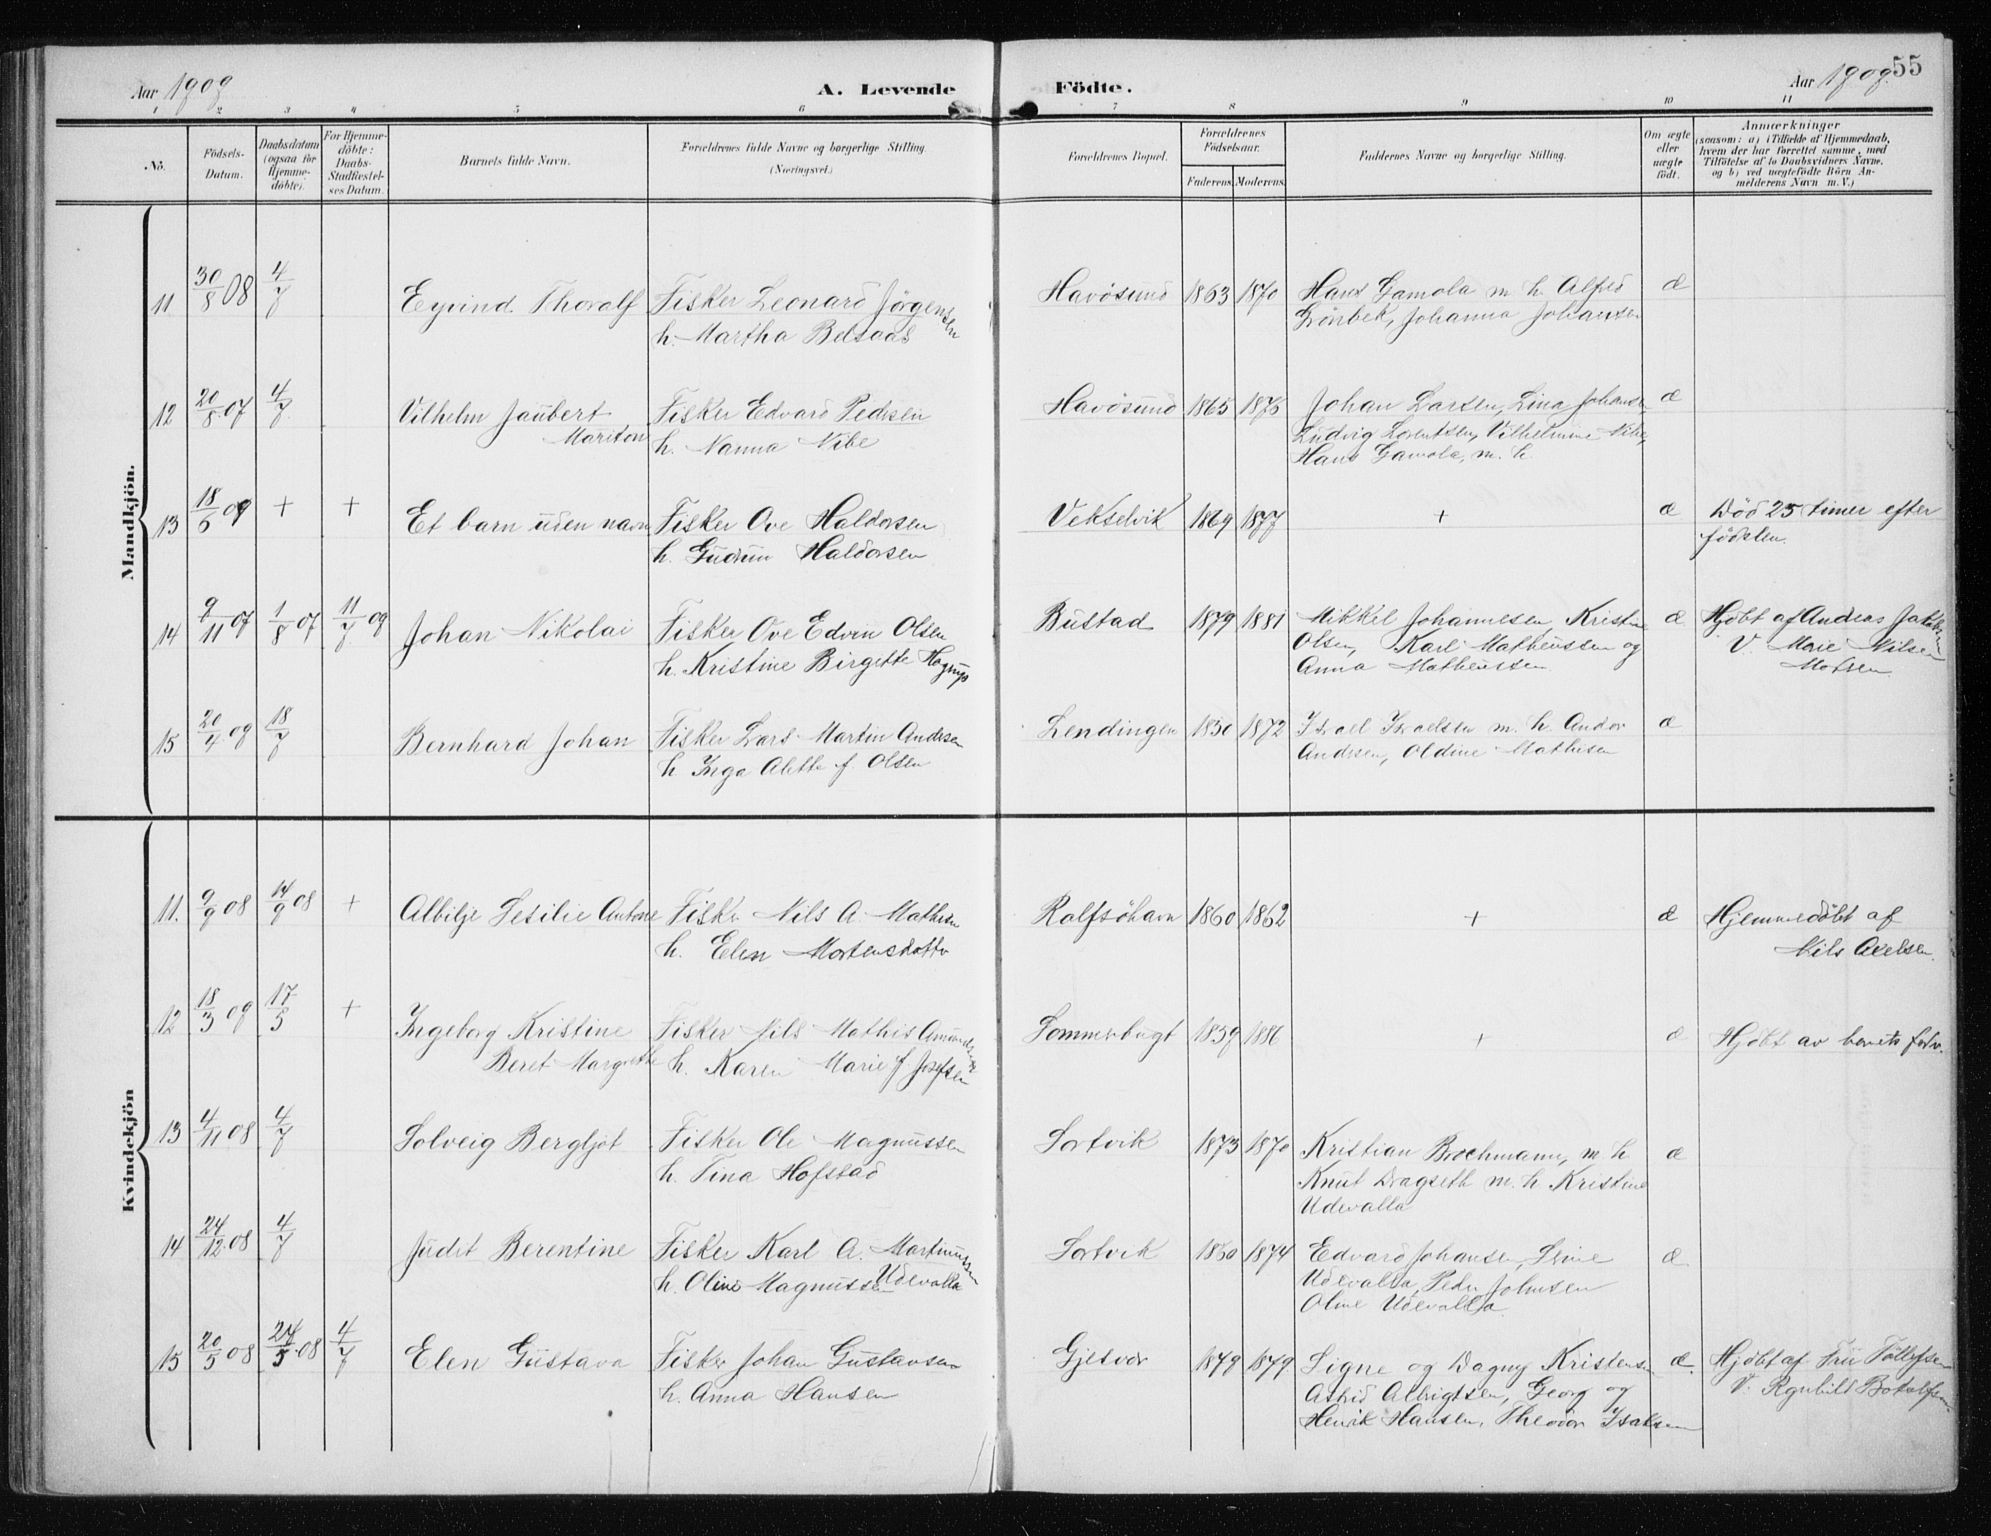 Aar 1909
A. Levende
Födte.
Aar 1909.
55
1 2 3 4 5 6 7 8 9 10 11
No.
Födsels-
Datum.
Daabsdatum
(ogsaa for
Hjemme-
döbte).
For Hjemme-
döbte:
Daabs-
Stadfæstel-
ses Datum.
Barnets fulde Navn.
Forældrenes fulde Navne og borgerlige Stilling.
(Næringsvei.)
Forældrenes Bopæl.
Forældrenes
Födselsaar.
Faderens. Moderens.
Faddernes Navne og borgerlige Stilling.
Om ægte
eller
uægte
födt.
Anmærkninger
(saasom: a) i Tilfælde af Hjemmedaab,
hvem der har forrettet samme, med
Tilföielse af to Daabsvidners Navne.
og b) ved uægtefödte Börn An-
melderens Navn m. V.)
Mandkjön.
11 30/8 08 4/7 Eyvind Thoralf Fisker Leonard Jørgensen
h. Martha Belsaas
Havösund 1863 1870 Hans Gamola m. h. Alfred
Grönbek, Johanna Johansen
æ
12 20/8 07 4/7 Vilhelm Jaubert
Mariton
Fisker Edvard Pedersen
h. Nanna Nibe
Havösund 1865 1875 Johan Larsen, Lina Johansen
Ludvig Lorentsen, Vilhelmine Nibe,
Hans Gamola, m. h.
æ
13 18/6 09 + + Et barn uden navn Fisker Ove Haldorsen
h. Gudrun Haldorsen
Vekselvik 1869 1877 + æ Död 25 timer efter
födselen.
14 9/11 07 1/8 07 11/7 09 Johan Nikolai Fisker Ove Edvin Olsen
h. Kristine Birgitte
Bustad 1879 1881 Mikkel Johannesen, Kristine
Olsen, Karl Matheussen og
Anna Matheussen.
æ Hjöbt af Andreas Jakobsen
V. Marie Nilsen
Madsen
15 20/4 09 18/7 Bernhard Johan Fisker Lars Martin Andersen
h. Inga Alette f. Olsen
Lendingen 1850 1872 Israel Israelsen m. h. Andor
Andersen, Oldine Mathisen
æ
Kvindekjön
11. 9/9 08 14/9 08 + Albilje Sesilie Antone Fisker Nils A. Mathisen
h. Elen Mortensdatter
Rolfsöhavn 1860 1862 + æ Hjemmedöbt af
Nils Axelsen.
12 18/3 09 17/5 + Ingeborg Kristine
Beret Margrethe
Fisker Nils Mathis Amundsen
h. Karen Marie f Josefsen
Sommerbugt 1859 1886 + æ Hjöbt av barnets
13 4/11 08 4/7 Solveig Bergljot Fisker Ole Magnussen
h. Tina Hofstad
Sortvik 1873 1870 Kristian Brochmann, m h
Knut Dragseth m. h Kristine
Udevalla
æ
14 24/12 08 4/7 Judit Berentine Fisker Karl A. Martinussen
Udevalla
h. Oline Magnussen
Sortvik 1850 1874 Edvard Johansen, Line
Udevalla, Peder Johnsen
Oline Udevalla
æ
15 20/5 08 24/5 08 4/7 Elen Gustava Fisker Johan Gustavsen
h. Anna Hansen
Gjesvær 1879 1879 Signe og Dagny Kristensen
Astrid Albrigtsen, Georg og
Henrik Hansen, Theodor Isaksen
æ. Hjöbt af Fru Tollefsen
V. Ragnhild Botolfsen